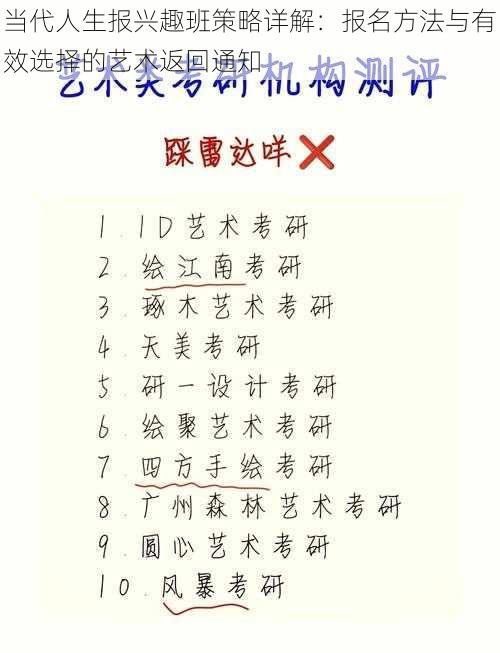 当代人生报兴趣班策略详解：报名方法与有
效选择的艺术返回通知
艺术类考研机构测评
踩雷达咩❌
1.1D艺术考研
2.绘江南考研
3.琢木艺术考研
4.天美考研
5.研一设计考研
6.绘聚艺术考研
7.四方手绘考研
8.广州森林艺术考研
9.圆心艺术考研
10.风暴考研